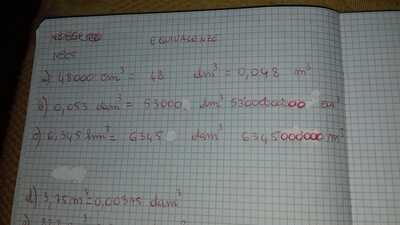 EQUIVALENZE
N85
a) 48000 cm³ = 48 dm³ = 0,048 m³
b) 0,053 dam³ = 53000 dm³ 53000000 cm³
c) 6,345 hm³ = 6345 dam³ 6345000000 m³
d) 3,75 m³ = 0,00375 dam³